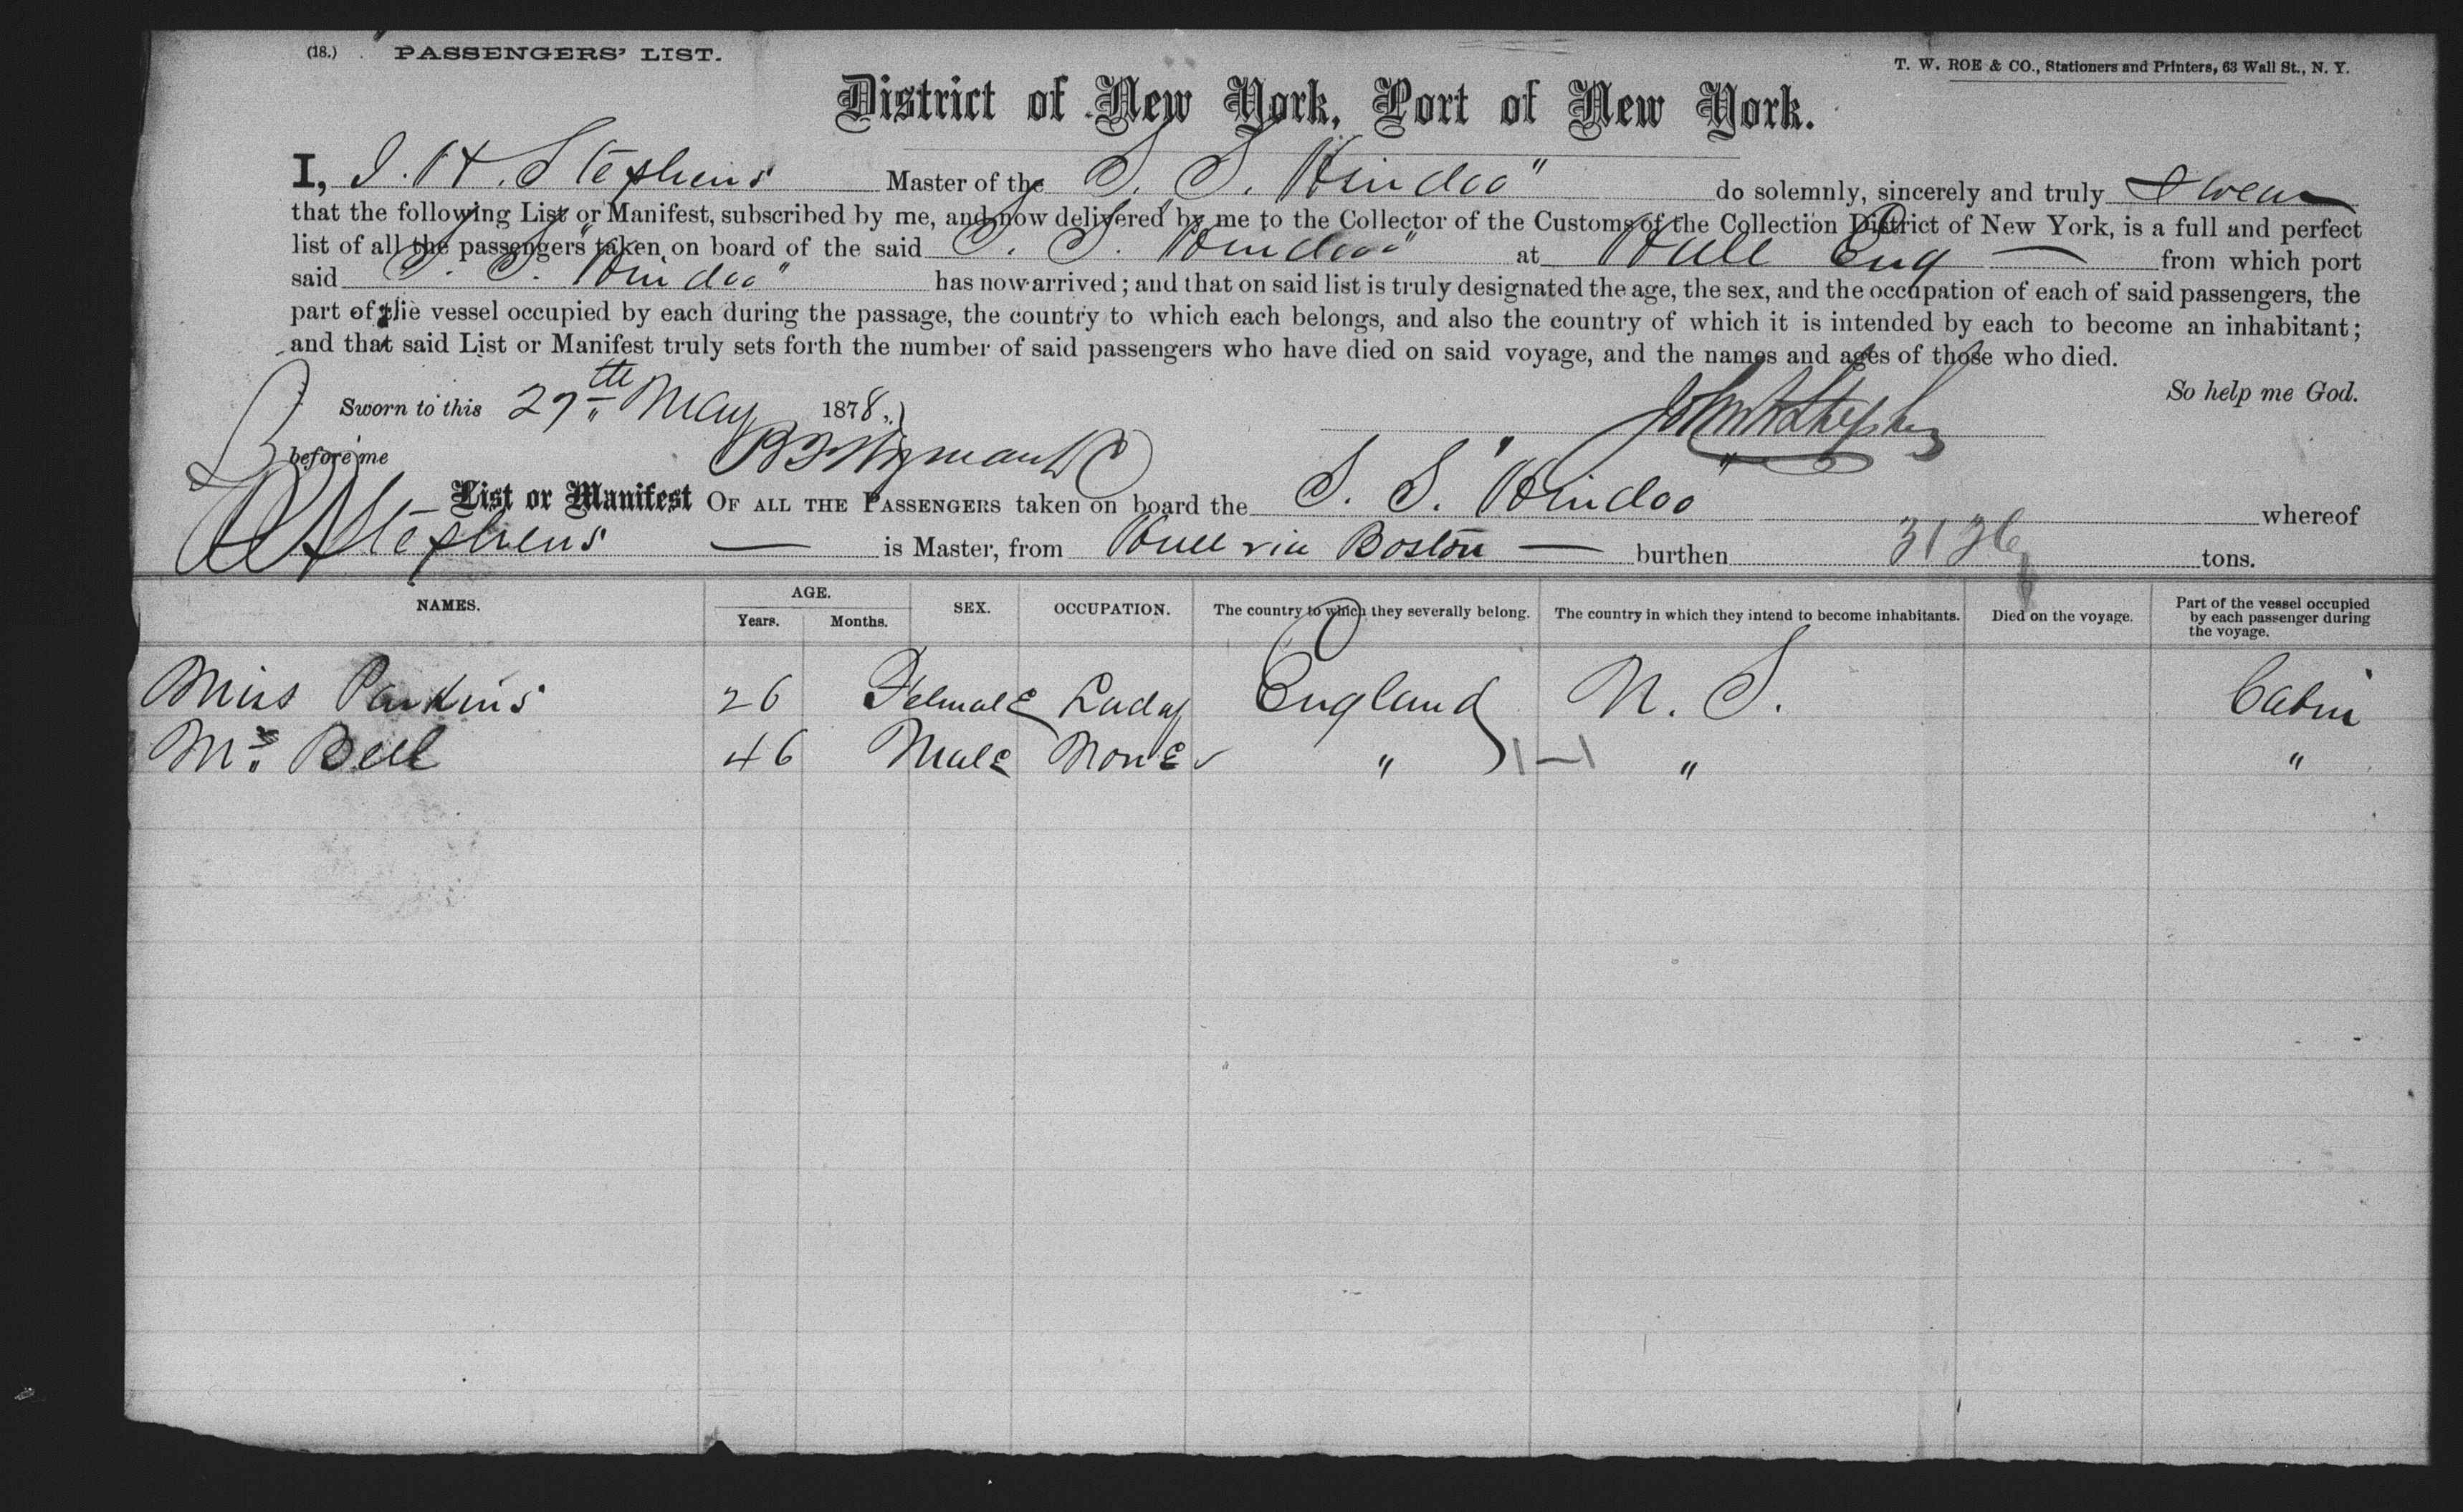 (18.) PASSENGERS' LIST.
T. W. ROE & CO., Stationers and Printers, 63 Wall St., N. Y.
District of New York, Port of New York.
I, J. H. Stephens Master of the S. S. "Hindoo" do solemnly, sincerely and truly Swear
that the following List or Manifest, subscribed by me, and now delivered by me to the Collector of the Customs of the Collection District of New York, is a full and perfect
list of all the passengers taken on board of the said S. S. "Hindoo" at Hull Eng from which port
said S. S. "Hindoo" has now arrived; and that on said list is truly designated the age, the sex, and the occupation of each of said passengers, the
part of the vessel occupied by each during the passage, the country to which each belongs, and also the country of which it is intended by each to become an inhabitant;
and that said List or Manifest truly sets forth the number of said passengers who have died on said voyage, and the names and ages of those who died.
So help me God.
Sworn to this 27th May 1878,
John H Stephens
before me
List or Manifest OF ALL THE PASSENGERS taken on board the S. S. "Hindoo" whereof
Stephens is Master, from Hull via Boston burthen 3136 tons.
NAMES. AGE. Years. Months. SEX. OCCUPATION. The country to which they severally belong. The country in which they intend to become inhabitants. Died on the voyage. Part of the vessel occupied by each passenger during the voyage.
Miss Parkins 26 Female Lady England U. S. Cabin
Mr. Bell 46 Male None " 1-1 " "